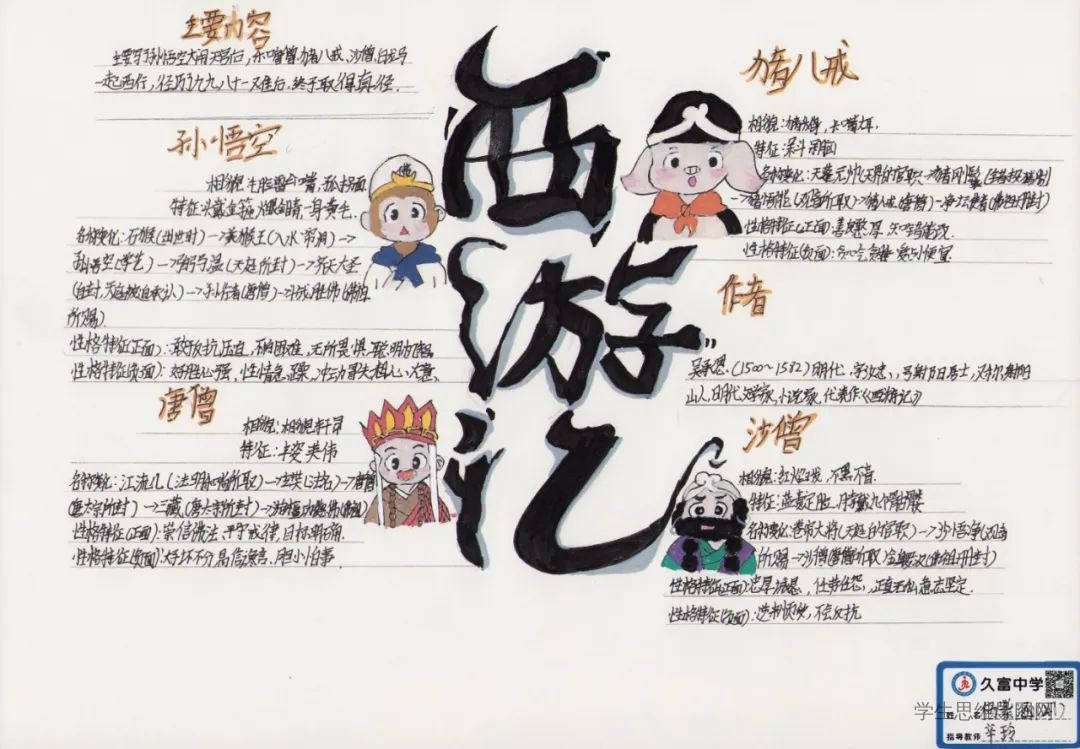 主要内容
主要写了孙悟空大闹天宫后,和唐僧、猪八戒、沙僧、白龙马
一起西行,经历九九八十一难后,终于取得真经.
孙悟空
相貌:毛脸雷公嘴,孤拐面
特征:头戴金箍,火眼金睛,一身黄毛.
名称变化:石猴(出世时)—>美猴王(入水帘洞)—>
孙悟空(学艺)—>弼马温(天庭所封)—>齐天大圣
(自封,天庭被迫承认)—>孙行者(唐僧)—>斗战胜佛(佛祖
所赐).
性格特征(正面):敢于反抗压迫,不怕困难,无所畏惧,聪明机智.
性格特征(负面):好胜心强、性情急躁、
唐僧
相貌:相貌轩昂
特征:丰姿英伟
名称变化:江流儿(法明和尚所取)—>玄奘(法名)—>唐僧
(唐太宗所封)—>三藏(唐太宗所封)—>旃檀功德佛(佛祖)
性格特征(正面):崇信佛法,严守戒律,目标明确.
性格特征(负面):好坏不分,易信谗言,胆小怕事.
西游记
猪八戒
相貌:
特征:呆
名称变化:天蓬元帅(天界的官职)—>猪刚鬣
—>猪悟能(观音所取)—>猪八戒(唐僧)—>净坛使者(佛祖所封)
性格特征(正面):善良憨厚,知错能改.
性格特征(负面):好吃贪睡 爱占便宜.
作者
吴承恩,(1500~1582)明代,字汝忠,号射阳居士,又称射阳
山人,明代文学家,小说家,代表作《西游记》
沙僧
相貌:红焰发,不黑不青.
特征:蓝靛脸,
名称变化:卷帘大将(天庭的官职)—>沙悟净(观音
所赐)—>沙僧(唐僧所取)金身罗汉(佛祖所封)
性格特征(正面):忠厚诚恳,任劳任怨,正直无私,意志坚定.
性格特征(负面):,不会反抗
久富中学
学生思维
姓名
指导教师